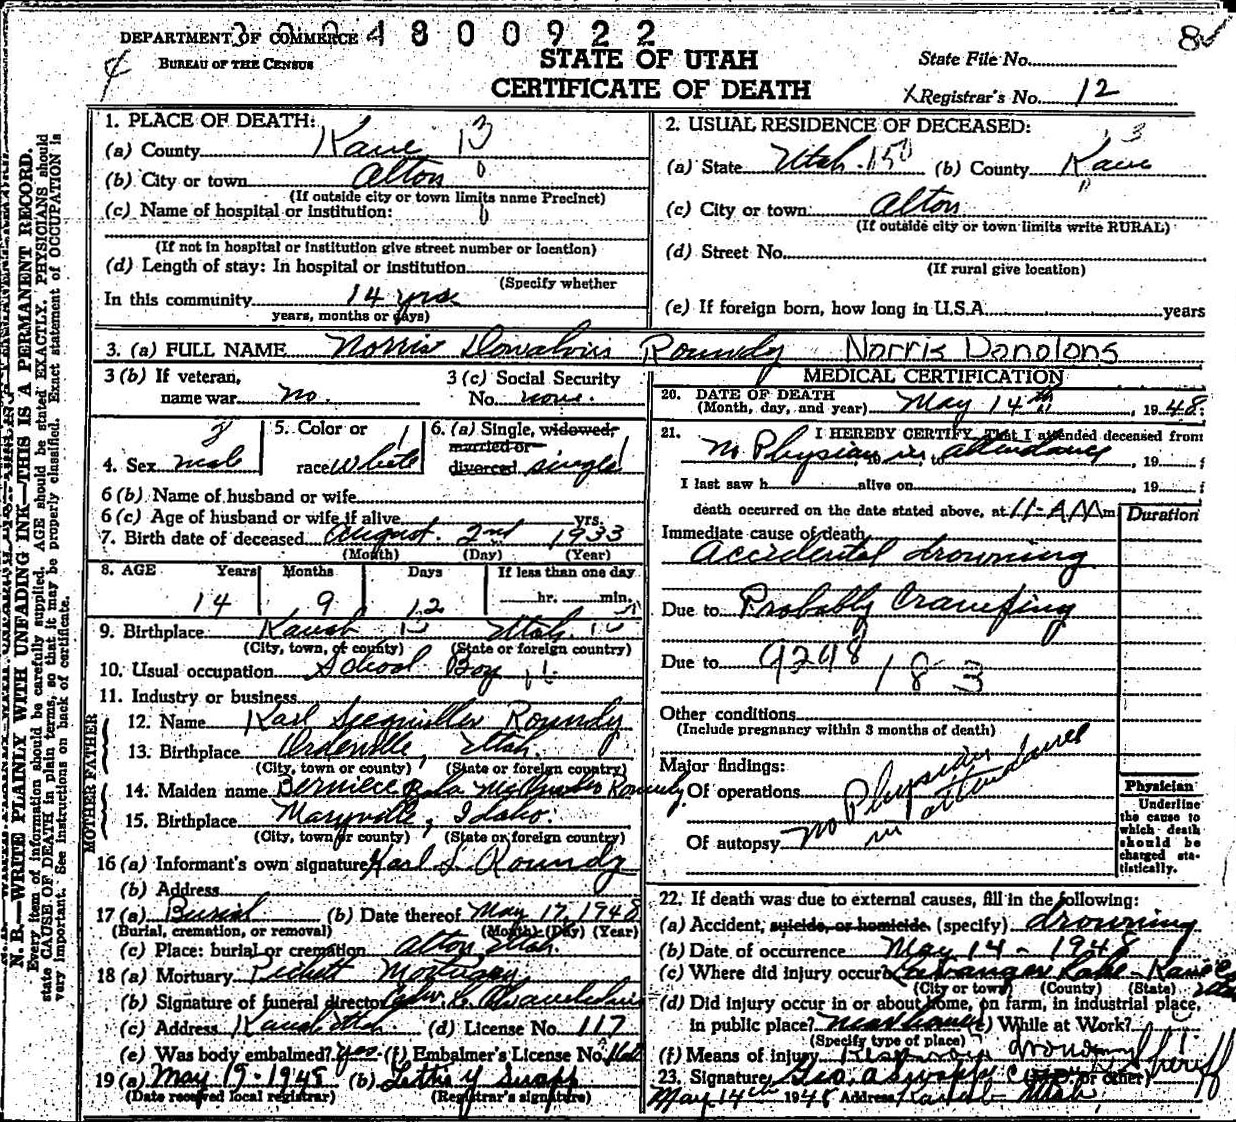 3024800922
8
DEPARTMENT OF COMMERCE
BUREAU OF THE CENSUS
4
STATE OF UTAH
CERTIFICATE OF DEATH
State File No.
X Registrar's No. 12
N. B.—WRITE PLAINLY WITH UNFADING INK—THIS IS A PERMANENT RECORD.
Every item of information should be carefully supplied. AGE should be stated EXACTLY. PHYSICIANS should
state CAUSE OF DEATH in plain terms, so that it may be properly classified. Exact statement of OCCUPATION is
very important. See instructions on back of certificate.
1. PLACE OF DEATH:
(a) County Kane 13
(b) City or town Alton 0
(If outside city or town limits name Precinct)
(c) Name of hospital or institution: 0
(If not in hospital or institution give street number or location)
(d) Length of stay: In hospital or institution
(Specify whether
In this community 14 yrs
years, months or days)
2. USUAL RESIDENCE OF DECEASED:
(a) State Utah 150 (b) County Kane 13
(c) City or town Alton
(If outside city or town limits write RURAL)
(d) Street No.
(If rural give location)
(e) If foreign born, how long in U.S.A. years
3. (a) FULL NAME Norris Roundy Norris Donolons
3 (b) If veteran, name war no.
3 (c) Social Security No. none.
4. Sex male
5. Color or race White
6. (a) Single, widowed, married or divorced single
6 (b) Name of husband or wife
6 (c) Age of husband or wife if alive yrs.
7. Birth date of deceased August. 2nd 1933
(Month) (Day) (Year)
8. AGE Years Months Days If less than one day
14 9 12 hr. min.
9. Birthplace Kanab Utah
(City, town, or county) (State or foreign country)
10. Usual occupation School Boy
11. Industry or business
FATHER
12. Name Karl Seegmiller Roundy
13. Birthplace Orderville, Utah.
(City, town or county) (State or foreign country)
MOTHER
14. Maiden name Berniece Roundy
15. Birthplace Marysville, Idaho.
(City, town or county) (State or foreign country)
16 (a) Informant's own signature Karl S. Roundy
(b) Address
17 (a) Burial (b) Date thereof May 17, 1948
(Burial, cremation, or removal) (Month) (Day) (Year)
(c) Place: burial or cremation Alton Utah.
18 (a) Mortuary Mortuary
(b) Signature of funeral director
(c) Address Kanab Utah (d) License No. 117
(e) Was body embalmed? yes (f) Embalmer's License No.
19 (a) May 19-1948 (b) Lettie Y Swapp
(Date received local registrar) (Registrar's signature)
MEDICAL CERTIFICATION
20. DATE OF DEATH
(Month, day, and year) May 14th, 1948
21. I HEREBY CERTIFY, That I attended deceased from
No Physician in attendance, 19
I last saw h alive on, 19
death occurred on the date stated above, at 11-AM m
Duration
Immediate cause of death
Accidental drowning
Due to Probably Cramping
Due to 9298 183
Other conditions
(Include pregnancy within 3 months of death)
Major findings:
Of operations
Of autopsy
no Physician in attendance
Physician
Underline the cause to which death should be charged statistically.
22. If death was due to external causes, fill in the following:
(a) Accident, suicide, or homicide (specify) drowning
(b) Date of occurrence May 14 - 1948
(c) Where did injury occur? Lake - Kane Utah
(City or town) (County) (State)
(d) Did injury occur in or about home, on farm, in industrial place,
in public place? near home (e) While at Work?
(Specify type of place)
(f) Means of injury drowning
23. Signature Geo. A Swapp Sheriff
May 14th 1948 Address Kanab Utah